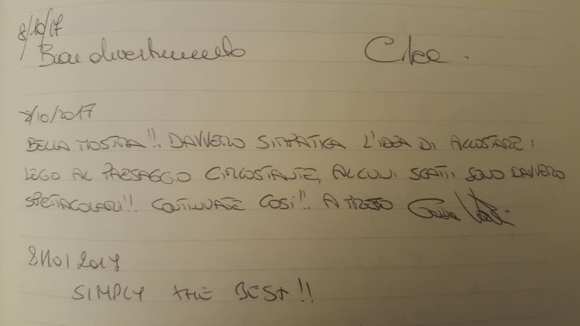 8/10/17
Buon divertimento
8/10/2017
BELLA MOSTRA!! DAVVERO SIMPATICA L'IDEA DI ACCOSTARE I
LEGO AL PAESAGGIO CIRCOSTANTE, ALCUNI SCATTI SONO DAVVERO
SPETTACOLARI!! CONTINUATE COSÌ!! A PRESTO
8/10/2017
SIMPLY THE BEST!!